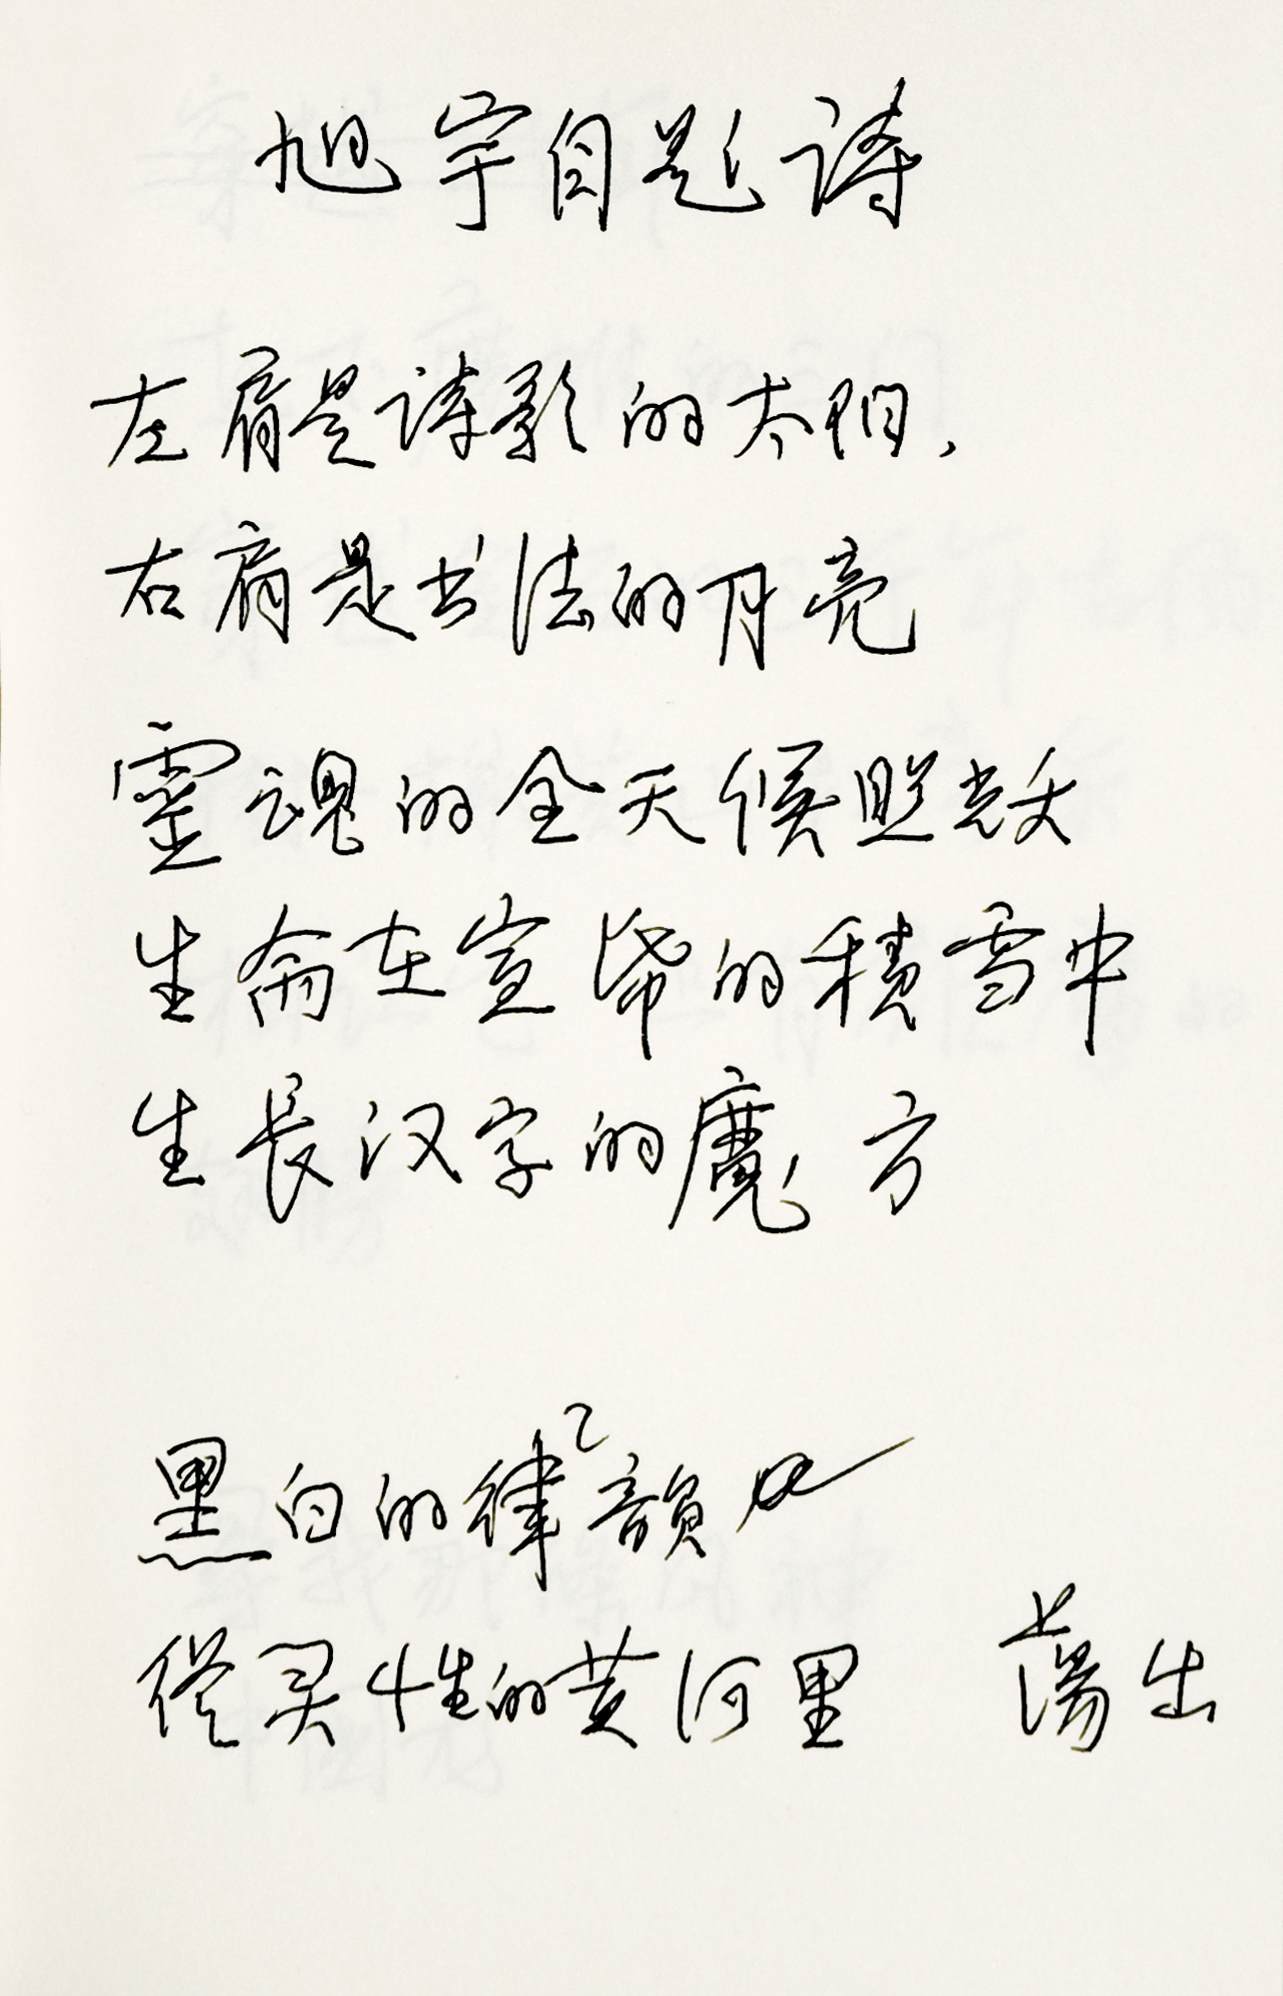 旭宇自题诗
左肩是诗歌的太阳，
右肩是书法的月亮
靈魂的全天候照耀
生命在宣纸的積雪中
生長汉字的魔方
黑白的律韻
從灵性的黄河里 蕩出